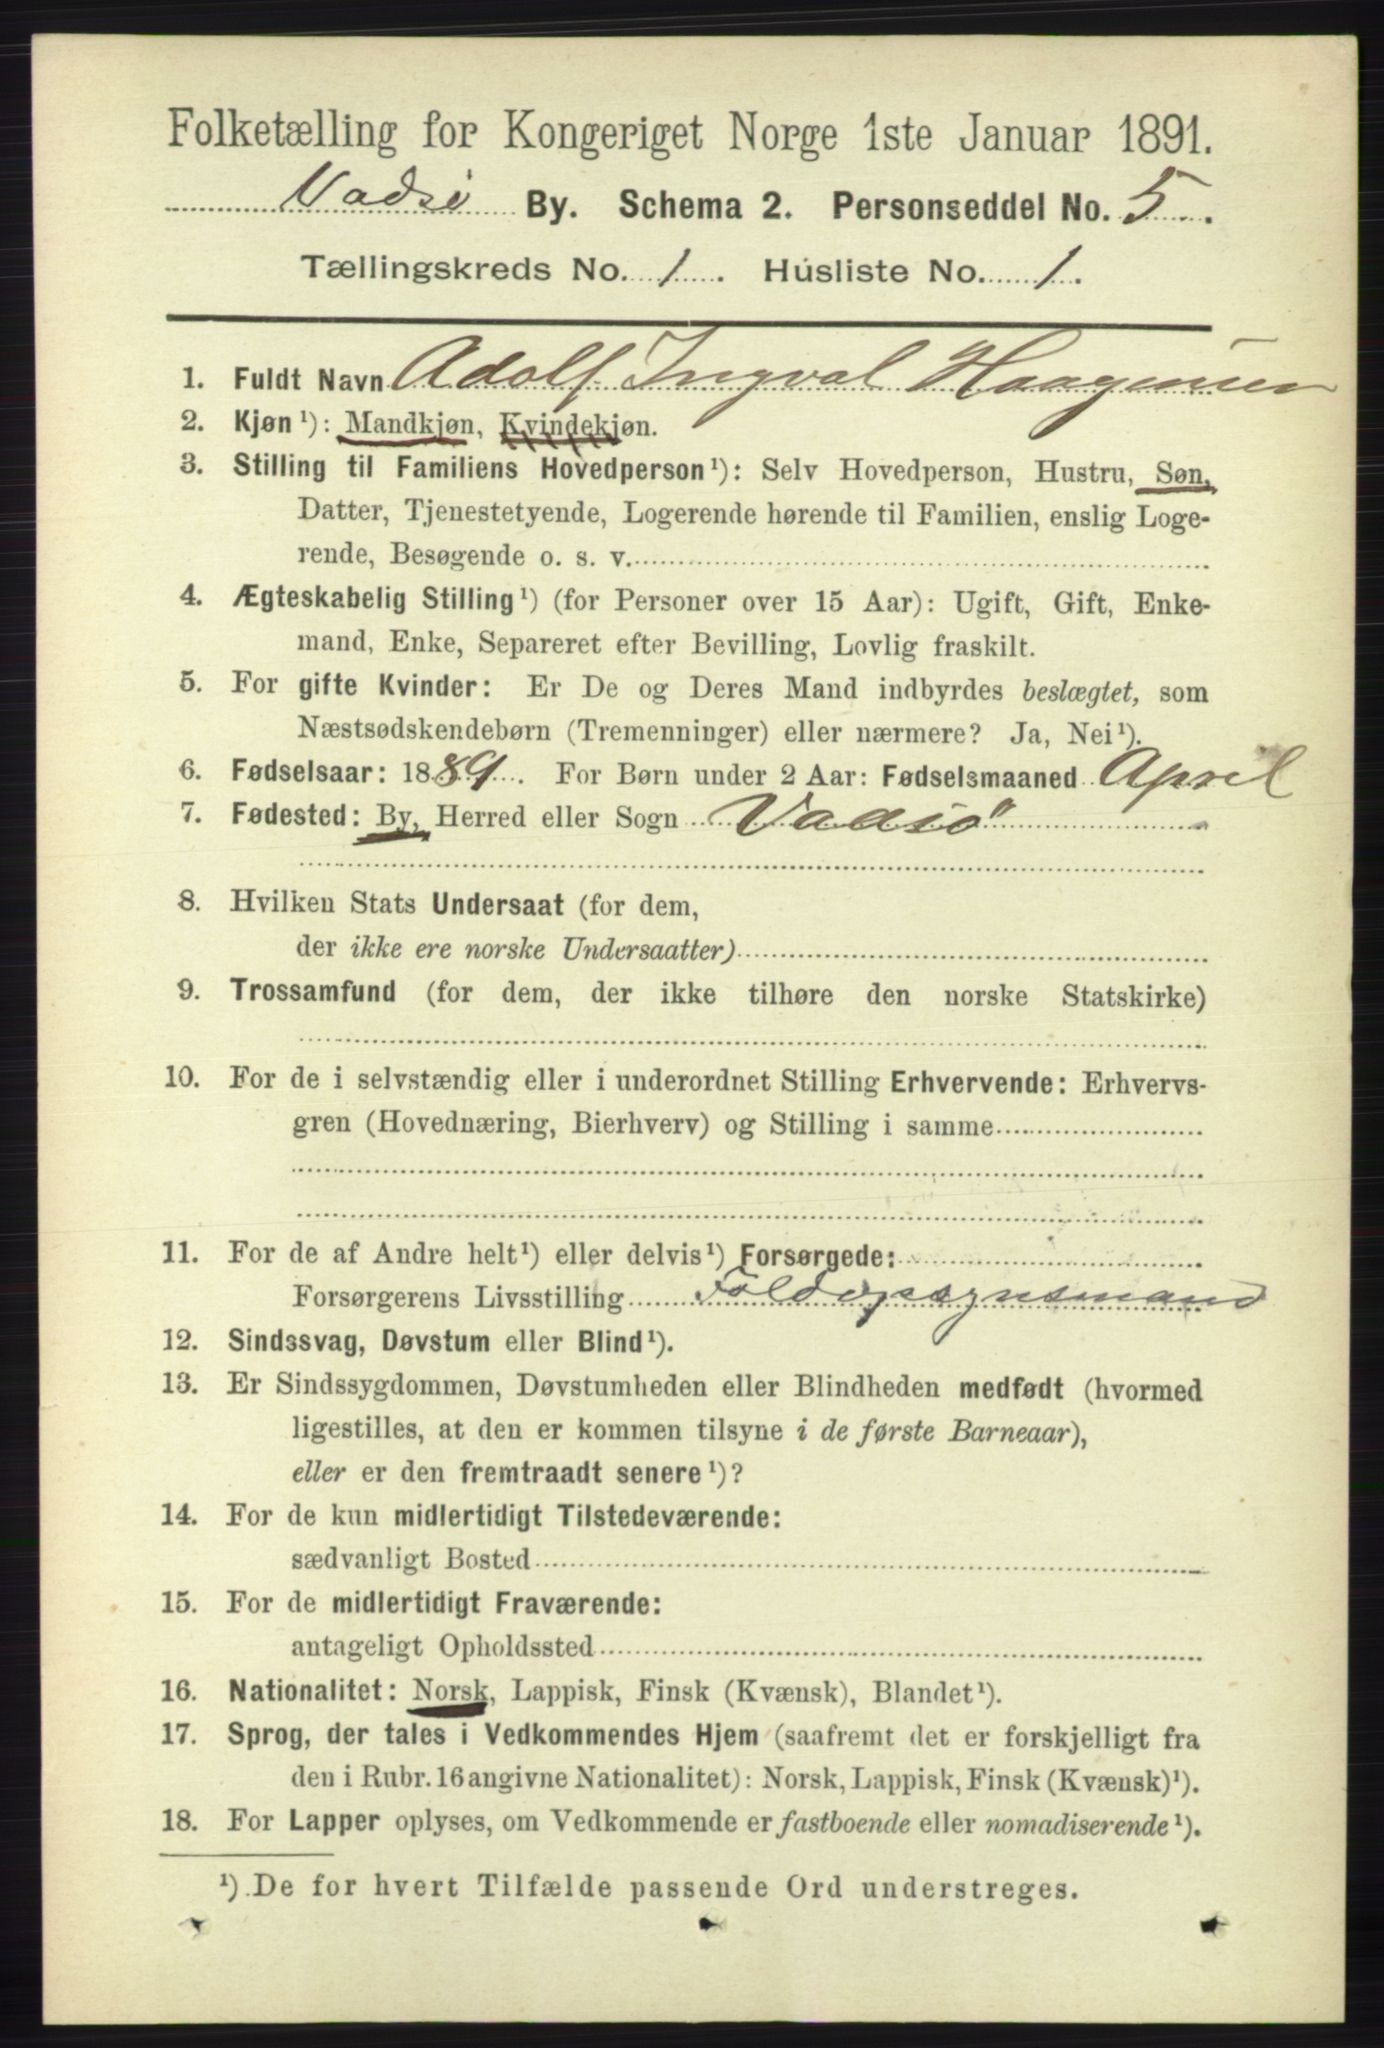 Folketælling for Kongeriget Norge 1ste Januar 1891.
Vadsø By. Schema 2. Personseddel No. 5.
Tællingskreds No. 1. Husliste No. 1.
1. Fuldt Navn Adolf Ingval Haagensen
2. Kjøn¹): Mandkjøn, Kvindekjøn.
3. Stilling til Familiens Hovedperson¹): Selv Hovedperson, Hustru, Søn,
Datter, Tjenestetyende, Logerende hørende til Familien, enslig Loge-
rende, Besøgende o. s. v.
4. Ægteskabelig Stilling¹) (for Personer over 15 Aar): Ugift, Gift, Enke-
mand, Enke, Separeret efter Bevilling, Lovlig fraskilt.
5. For gifte Kvinder: Er De og Deres Mand indbyrdes beslægtet, som
Næstsødskendebørn (Tremenninger) eller nærmere? Ja, Nei¹).
6. Fødselsaar: 1889. For Børn under 2 Aar: Fødselsmaaned April
7. Fødested: By, Herred eller Sogn Vadsø
8. Hvilken Stats Undersaat (for dem,
der ikke ere norske Undersaatter)
9. Trossamfund (for dem, der ikke tilhøre den norske Statskirke)
10. For de i selvstændig eller i underordnet Stilling Erhvervende: Erhvervs-
gren (Hovednæring, Bierhverv) og Stilling i samme
11. For de af Andre helt¹) eller delvis¹) Forsørgede:
Forsørgerens Livsstilling Toldopsynsmand
12. Sindssvag, Døvstum eller Blind¹).
13. Er Sindssygdommen, Døvstumheden eller Blindheden medfødt (hvormed
ligestilles, at den er kommen tilsyne i de første Barneaar),
eller er den fremtraadt senere¹)?
14. For de kun midlertidigt Tilstedeværende:
sædvanligt Bosted
15. For de midlertidigt Fraværende:
antageligt Opholdssted
16. Nationalitet: Norsk, Lappisk, Finsk (Kvænsk), Blandet¹).
17. Sprog, der tales i Vedkommendes Hjem (saafremt det er forskjelligt fra
den i Rubr. 16 angivne Nationalitet): Norsk, Lappisk, Finsk (Kvænsk)¹).
18. For Lapper oplyses, om Vedkommende er fastboende eller nomadiserende¹).
¹) De for hvert Tilfælde passende Ord understreges.